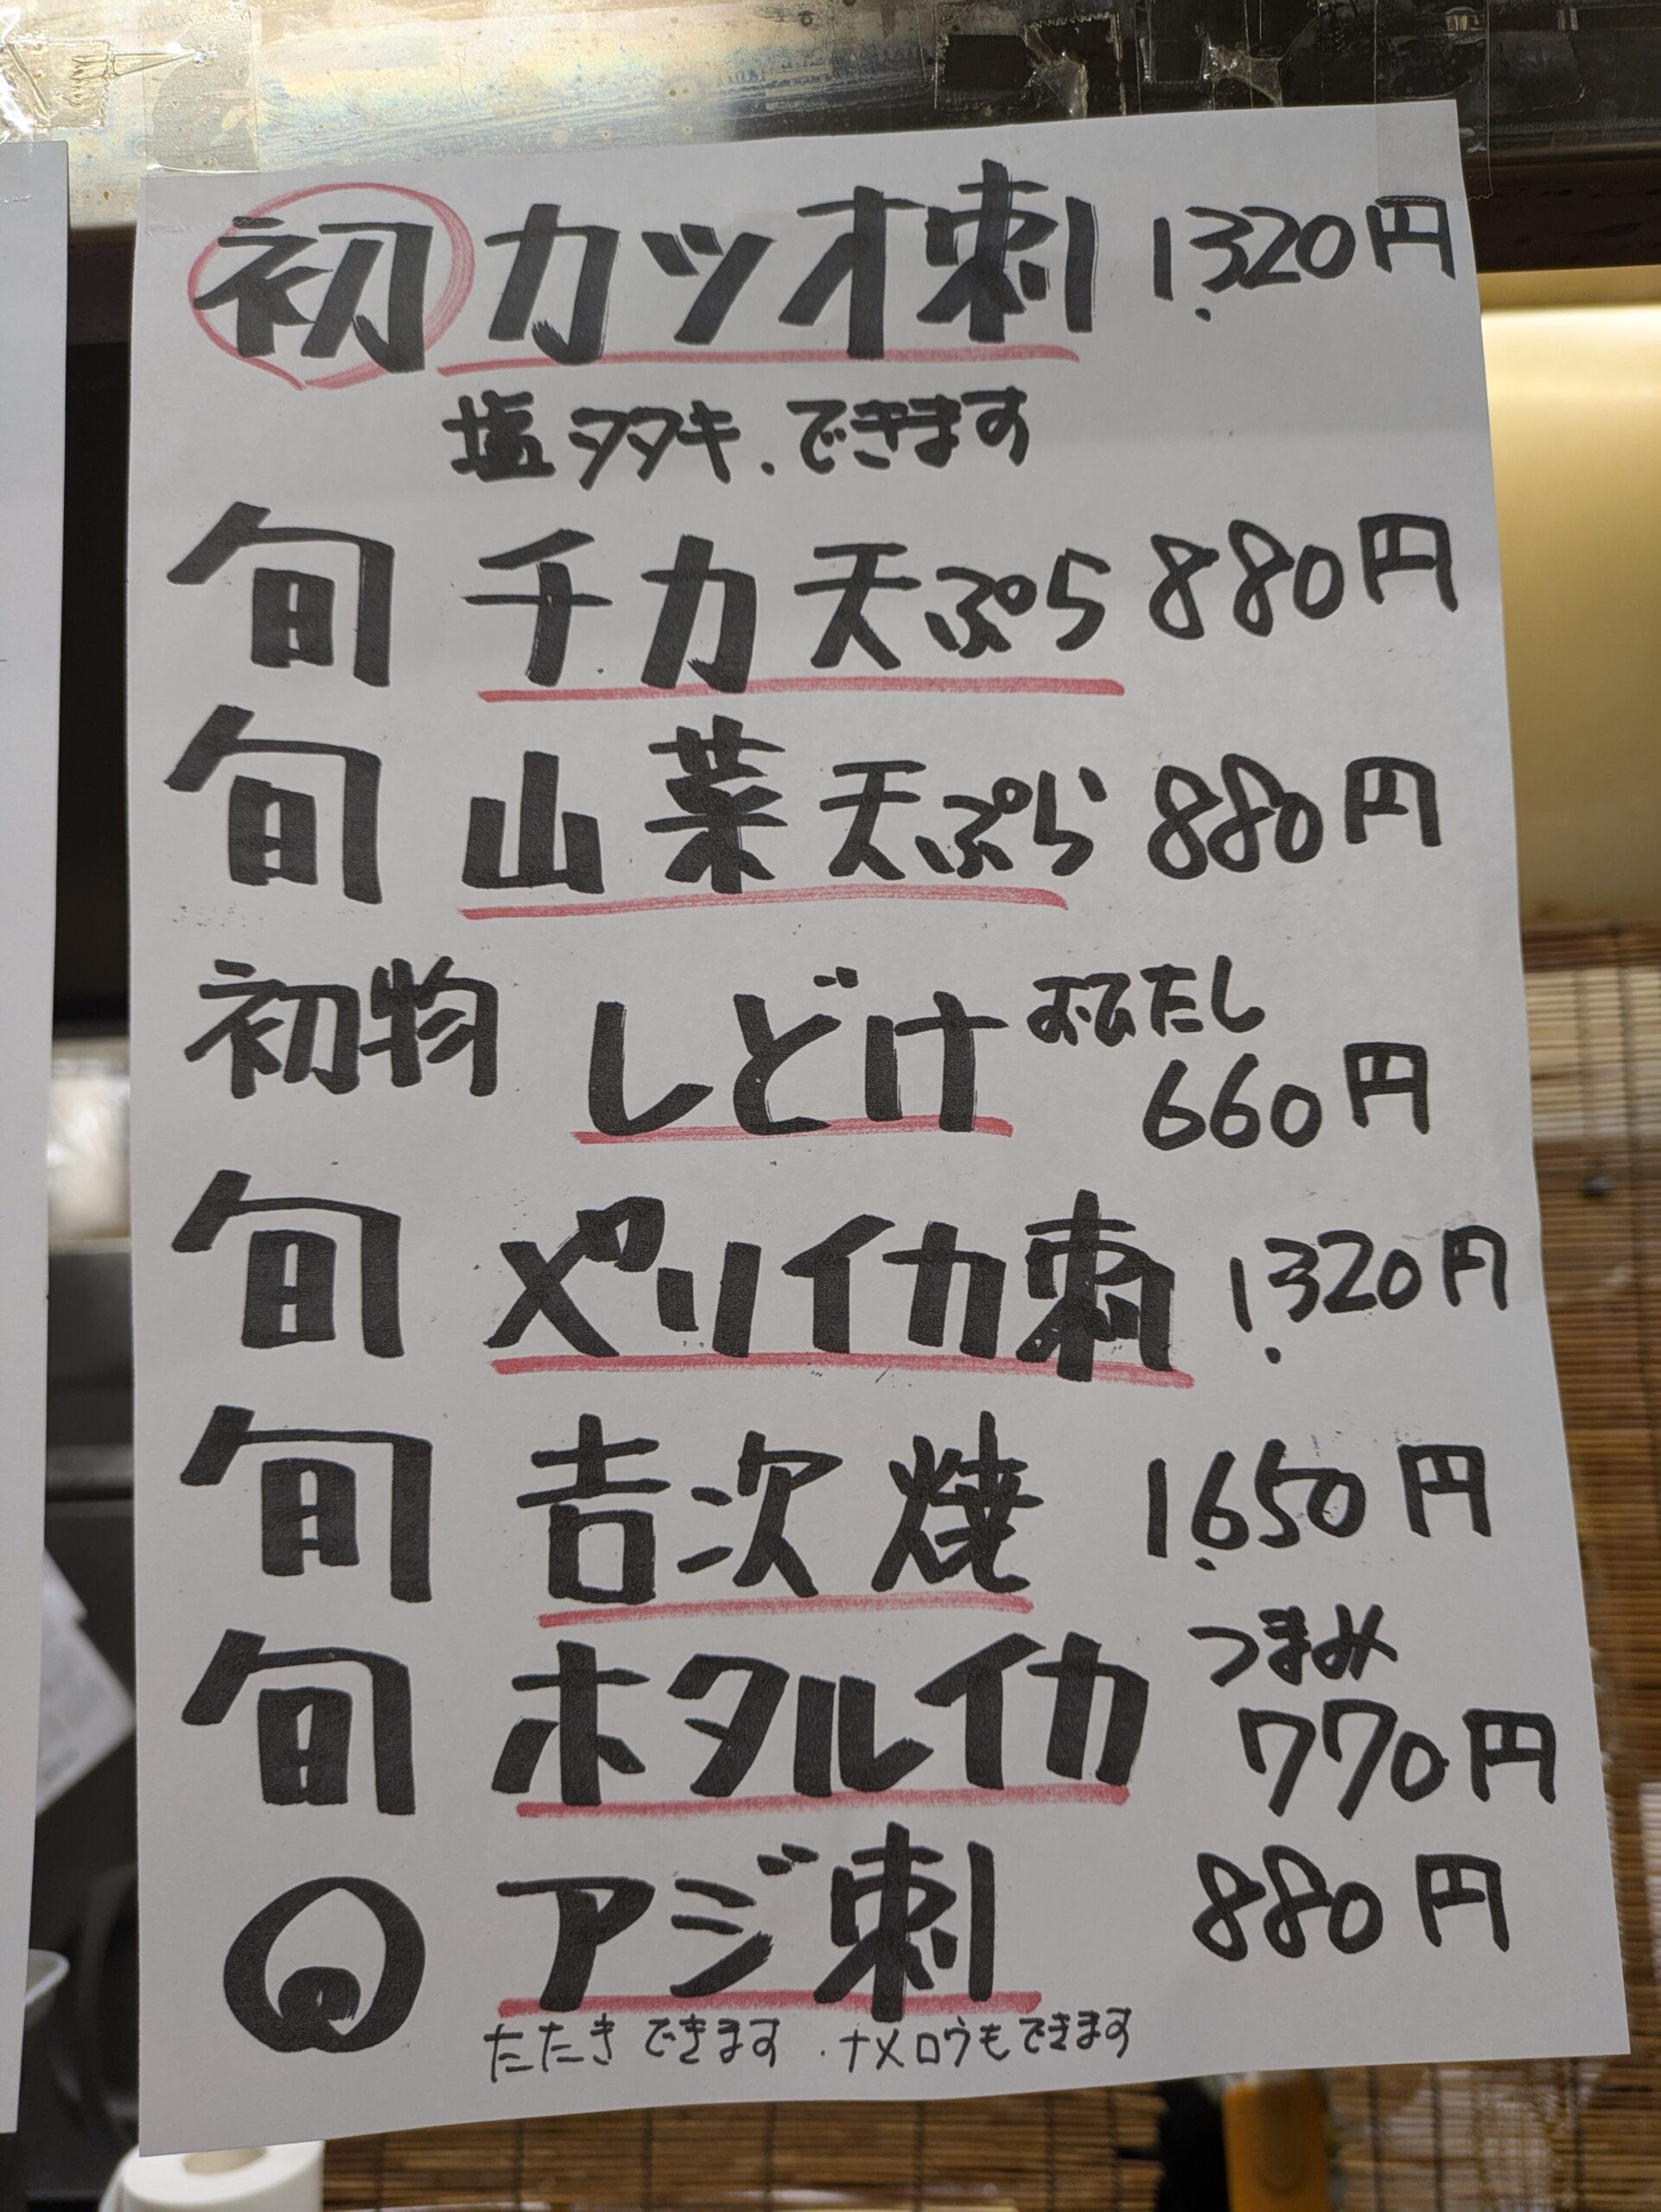 初 カツオ刺 1,320円
塩タタキ.できます
旬 チカ天ぷら 880円
旬 山菜天ぷら 880円
初物 しどけ おひたし 660円
旬 ヤリイカ刺 1,320円
旬 吉次焼 1,650円
旬 ホタルイカ つまみ 770円
アジ刺 880円
たたきできます.ナメロウもできます